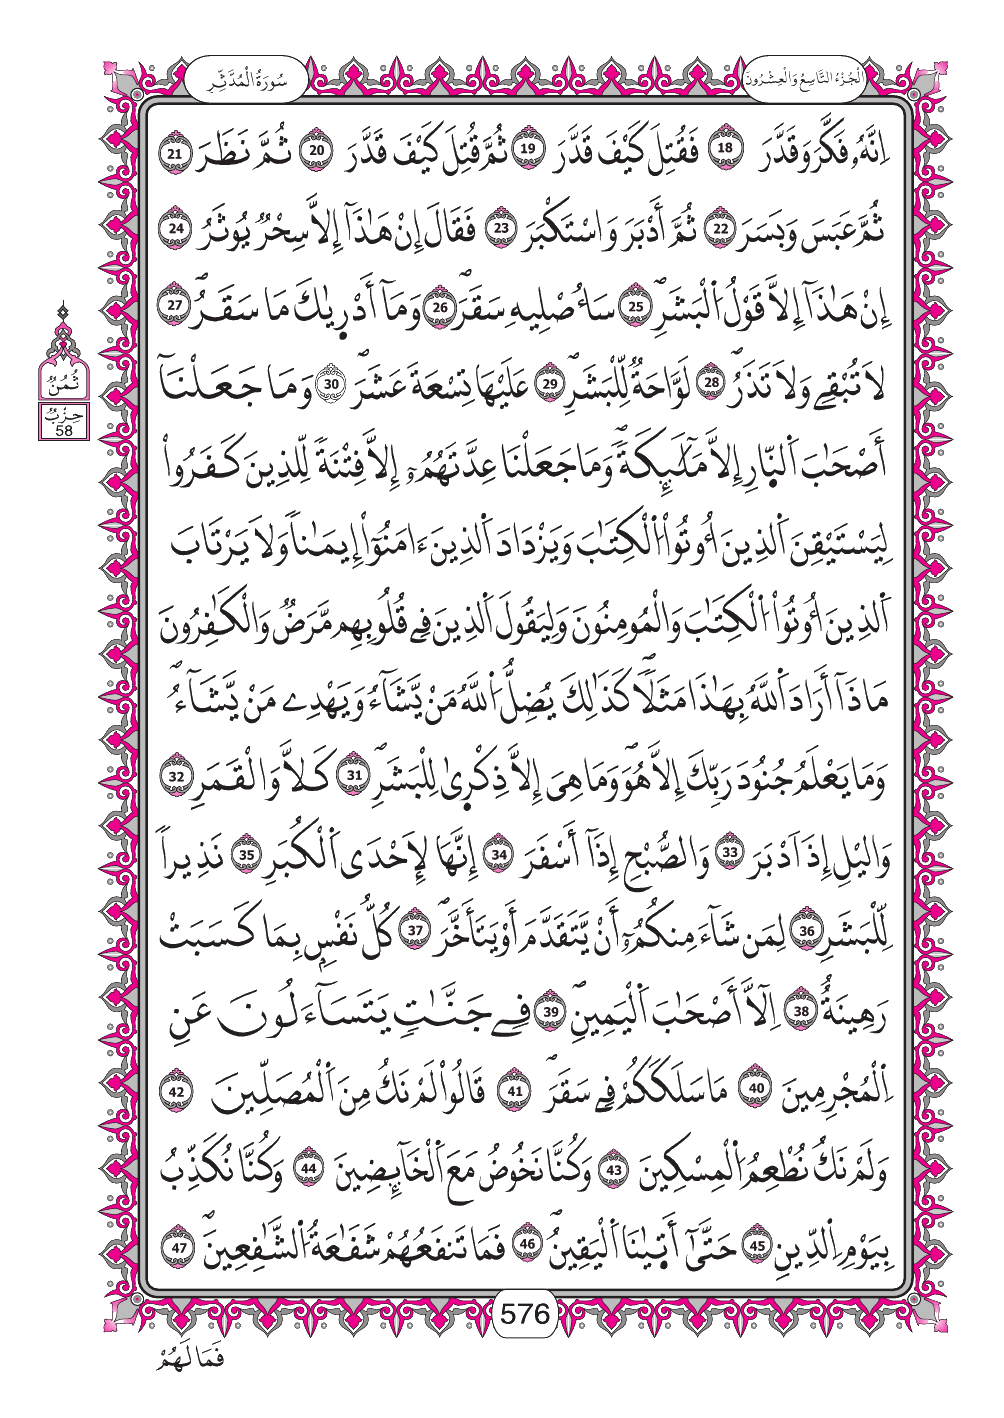 الْجُزْءُ التَّاسِعُ وَالْعِشْرُونَ
سُورَةُ الْمُدَّثِّرِ
إِنَّهُۥ فَكَّرَ وَقَدَّرَ 18 فَقُتِلَ كَيْفَ قَدَّرَ 19 ثُمَّ قُتِلَ كَيْفَ قَدَّرَ 20 ثُمَّ نَظَرَ 21
ثُمَّ عَبَسَ وَبَسَرَ 22 ثُمَّ أَدْبَرَ وَاسْتَكْبَرَ 23 فَقَالَ إِنْ هَٰذَآ إِلَّا سِحْرٌ يُوثَرُ 24
إِنْ هَٰذَآ إِلَّا قَوْلُ الْبَشَرِۖ 25 سَأُصْلِيهِ سَقَرَۖ 26 وَمَآ أَدْر۪يٰكَ مَا سَقَرُۖ 27
لَا تُبْقِے وَلَا تَذَرُۖ 28 لَوَّاحَةٌ لِّلْبَشَرِۖ 29 عَلَيْهَا تِسْعَةَ عَشَرَۖ 30 وَمَا جَعَلْنَآ
أَصْحَٰبَ اَ۬لنّ۪ارِ إِلَّا مَلَٰٓئِكَةٗۖ وَمَا جَعَلْنَا عِدَّتَهُمُۥٓ إِلَّا فِتْنَةٗ لِّلذِينَ كَفَرُواْ
لِيَسْتَيْقِنَ اَ۬لذِينَ أُوتُواْ اُ۬لْكِتَٰبَ وَيَزْدَادَ اَ۬لذِينَ ءَامَنُوٓاْ إِيمَٰناٗ وَلَا يَرْتَابَ
اَ۬لذِينَ أُوتُواْ اُ۬لْكِتَٰبَ وَالْمُومِنُونَ وَلِيَقُولَ اَ۬لذِينَ فِے قُلُوبِهِم مَّرَضٞ وَالْكَٰفِرُونَ
مَاذَآ أَرَادَ اَ۬للَّهُ بِهَٰذَا مَثَلاٗۖ كَذَٰلِكَ يُضِلُّ اُ۬للَّهُ مَنْ يَّشَآءُ وَيَهْدِے مَنْ يَّشَآءُۖ
وَمَا يَعْلَمُ جُنُودَ رَبِّكَ إِلَّا هُوَۖ وَمَا هِيَ إِلَّا ذِكْر۪يٰ لِلْبَشَرِۖ 31 كَلَّا وَالْقَمَرِ 32
وَاليْلِ إِذَ اَدْبَرَ 33 وَالصُّبْحِ إِذَآ أَسْفَرَ 34 إِنَّهَا لَإِحْدَى اَ۬لْكُبَرِ 35 نَذِيراٗ
لِّلْبَشَرِ 36 لِمَن شَآءَ مِنكُمُۥٓ أَنْ يَّتَقَدَّمَ أَوْ يَتَأَخَّرَۖ 37 كُلُّ نَفْسِۢ بِمَا كَسَبَتْ
رَهِينَةٌ 38 اِلَّآ أَصْحَٰبَ اَ۬لْيَمِينِۖ 39 فِے جَنَّٰتٖ يَتَسَآءَلُونَ عَنِ
اِ۬لْمُجْرِمِينَ 40 مَا سَلَكَكُمْ فِے سَقَرَۖ 41 قَالُواْ لَمْ نَكُ مِنَ اَ۬لْمُصَلِّينَ 42
وَلَمْ نَكُ نُطْعِمُ اُ۬لْمِسْكِينَ 43 وَكُنَّا نَخُوضُ مَعَ اَ۬لْخَآئِضِينَ 44 وَكُنَّا نُكَذِّبُ
بِيَوْمِ اِ۬لدِّينِ 45 حَتَّىٰٓ أَت۪يٰنَا اَ۬لْيَقِينُۖ 46 فَمَا تَنفَعُهُمْ شَفَٰعَةُ اُ۬لشَّٰفِعِينَۖ 47
ثُمُنٌ
حِزْبٌ
58
576
فَمَا لَهُمْ